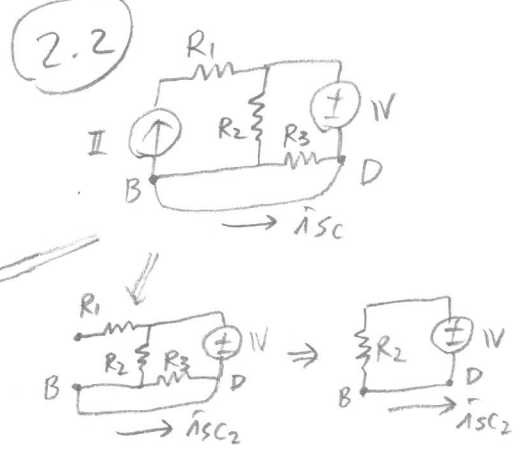 2.2
R1
II
R2
R3
IV
B
D
isc
R1
R2
R3
IV
B
D
isc2
R2
IV
B
D
isc2